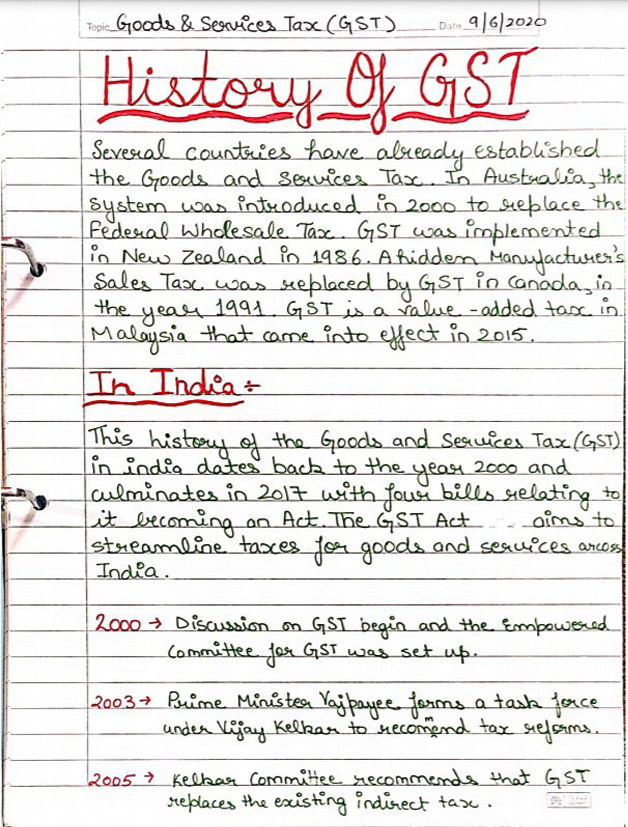 Topic Goods & Services Tax (GST) Date 9/6/2020
History Of GST
Several countries have already established
the Goods and Services Tax. In Australia, the
System was introduced in 2000 to replace the
Federal Wholesale Tax. GST was implemented
in New Zealand in 1986. A hidden Manufacturer's
Sales Tax was replaced by GST in Canada, in
the year 1991. GST is a value-added tax in
Malaysia that came into effect in 2015.
In India:-
This history of the Goods and Services Tax (GST)
in india dates back to the year 2000 and
culminates in 2017 with four bills relating to
it becoming an Act. The GST Act aims to
streamline taxes for goods and services arcoss
India.
2000 → Discussion on GST begin and the Empowered
Committee for GST was set up.
2003 → Prime Minister Vajpayee forms a task force
under Vijay Kelkar to recommend tax reforms.
2005 → Kelkar Committee recommends that GST
replaces the existing indirect tax.